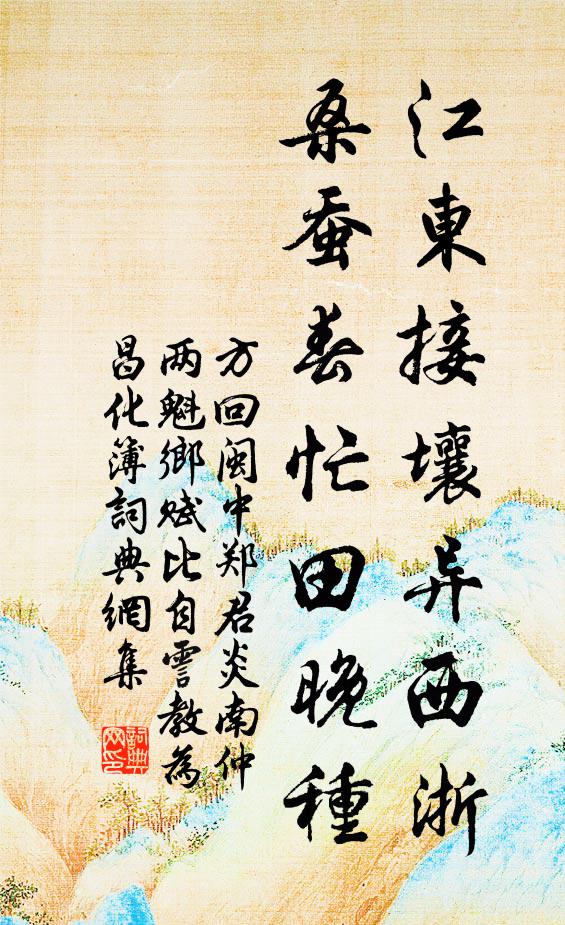 江東接壤异西浙
桑蚕春忙田晚種
方回闽中郑君炎南仲
两魁鄉赋比自雲教為
昌化簿詞典網集
詞典网印